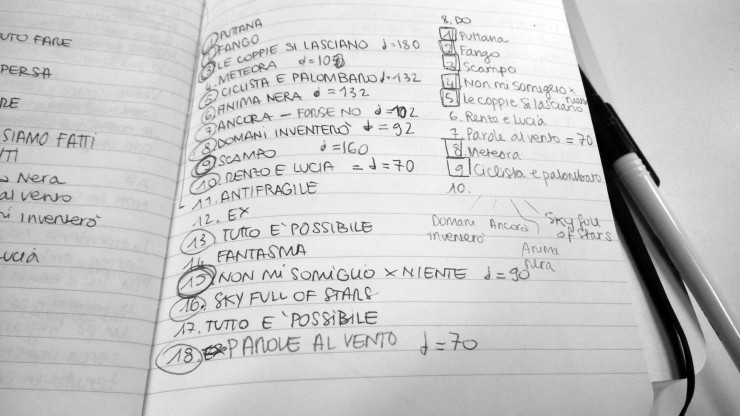 UTO FARE
PERSA
RE
SIAMO FATTI
TI
NERA
al vento
ni inventerò
ucia
1. PUTTANA
2. FANGO
3. LE COPPIE SI LASCIANO ♩=180
4. METEORA ♩=105
5. CICLISTA E PALOMBARO ♩=132
6. ANIMA NERA ♩=132
7. ANCORA - FORSE NO ♩=102
8. DOMANI INVENTERÒ ♩=92
9. SCAMPO ♩=160
10. RENZO E LUCIA = ♩=70
11. ANTIFRAGILE
12. EX
13. TUTTO E' POSSIBILE
14. FANTASMA
15. NON MI SOMIGLIO X NIENTE ♩=90
16. SKY FULL OF STARS
17. TUTTO E' POSSIBILE
18. PAROLE AL VENTO ♩=70
8. DO
1 Puttana
2 Fango
3 Scampo
4 Non mi somiglio x niente
5 Le coppie si lasciano
6. Renzo e Lucia
7. Parole al vento = 70
8 Meteora
9 Ciclista e palombaro
10.
Domani inventerò
Ancora
Sky full of stars
Anima nera